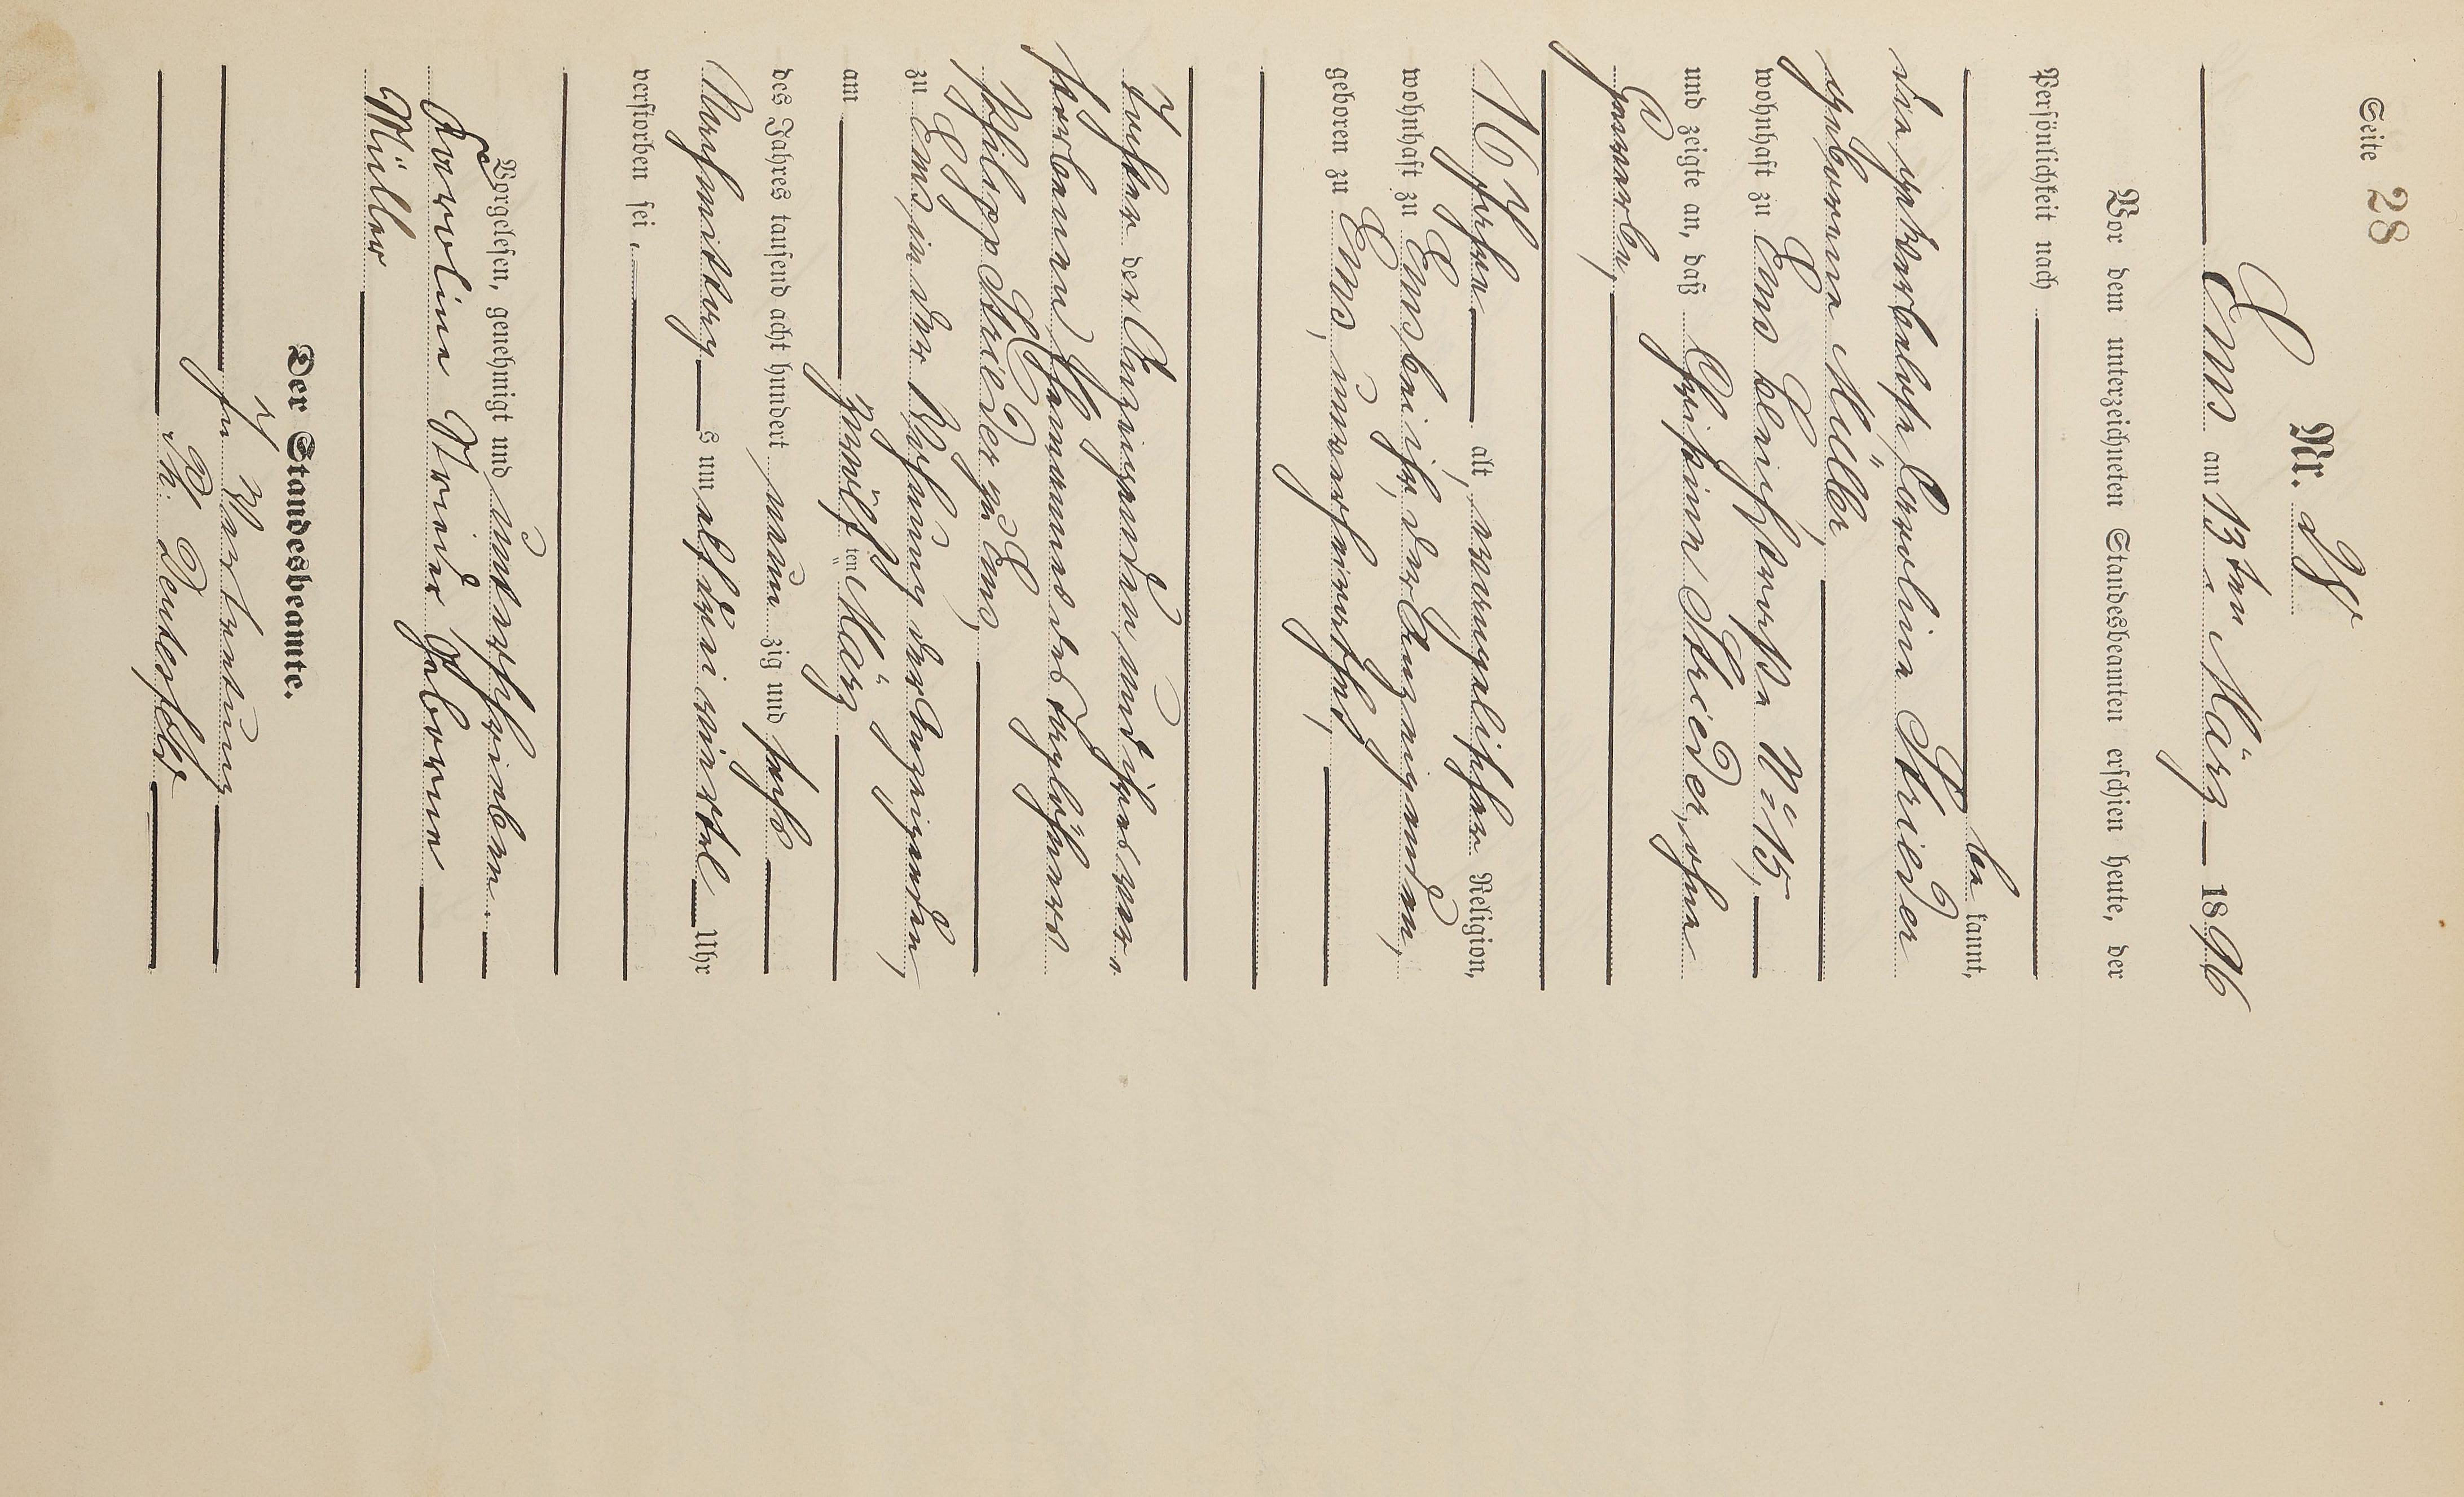 Seite 28
Nr. 28
Ems am 13ten März 1896
Vor dem unterzeichneten Standesbeamten erschien heute, der
Persönlichkeit nach
be kannt,
die gewerbelose Caroline Strieder
geborene Müller
wohnhaft zu Ems Bleichstraße No 15,
und zeigte an, daß Christine Strieder, ohne
Gewerbe,
16 Jahre alt, evangelischer Religion,
wohnhaft zu Ems, bei ihr, der Anzeigenden,
geboren zu Ems, unverheirathet,
Tochter der Anzeigenden und ihres ver-
storbenen Ehemannes des Taglöhners
Philipp Strieder zu Ems,
zu Ems, in der Wohnung der Anzeigenden,
am zwölf ten März
des Jahres tausend acht hundert neun zig und sechs
Nachmittags um elf drei viertel Uhr
verstorben sei.
Vorgelesen, genehmigt und unterschrieben.
Karoline Strieder Geborene
Müller
Der Standesbeamte.
In Vertretung